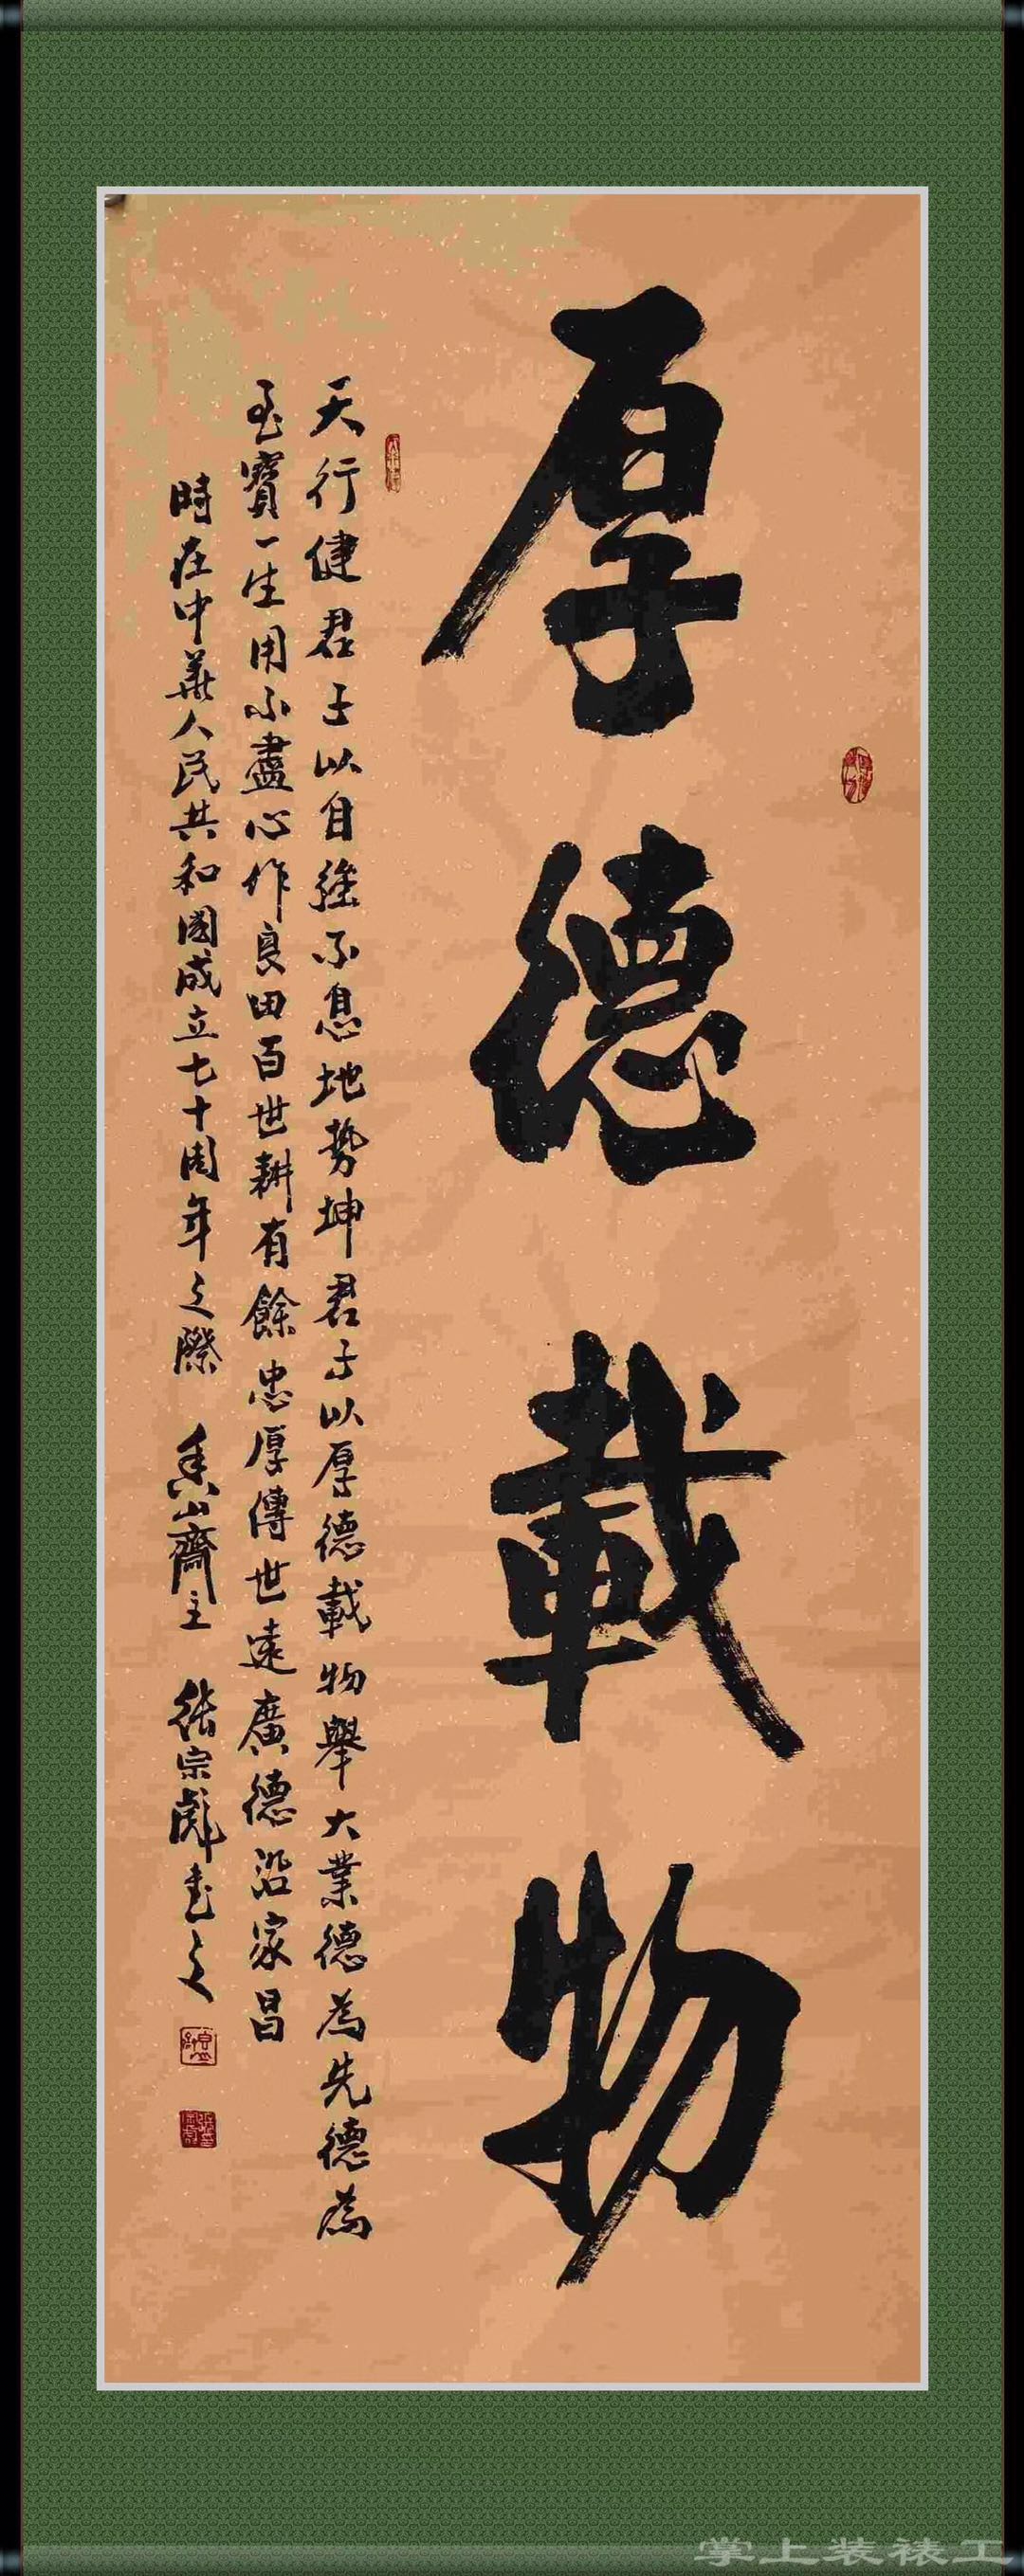 厚德載物
天行健君子以自強不息地勢坤君子以厚德載物舉大業德為先德為
至寶一生用不盡心作良田百世耕有餘忠厚傳世遠廣德沿家昌
時在中華人民共和國成立七十周年之際 香山齋主 張宗彪書之
掌上装裱工